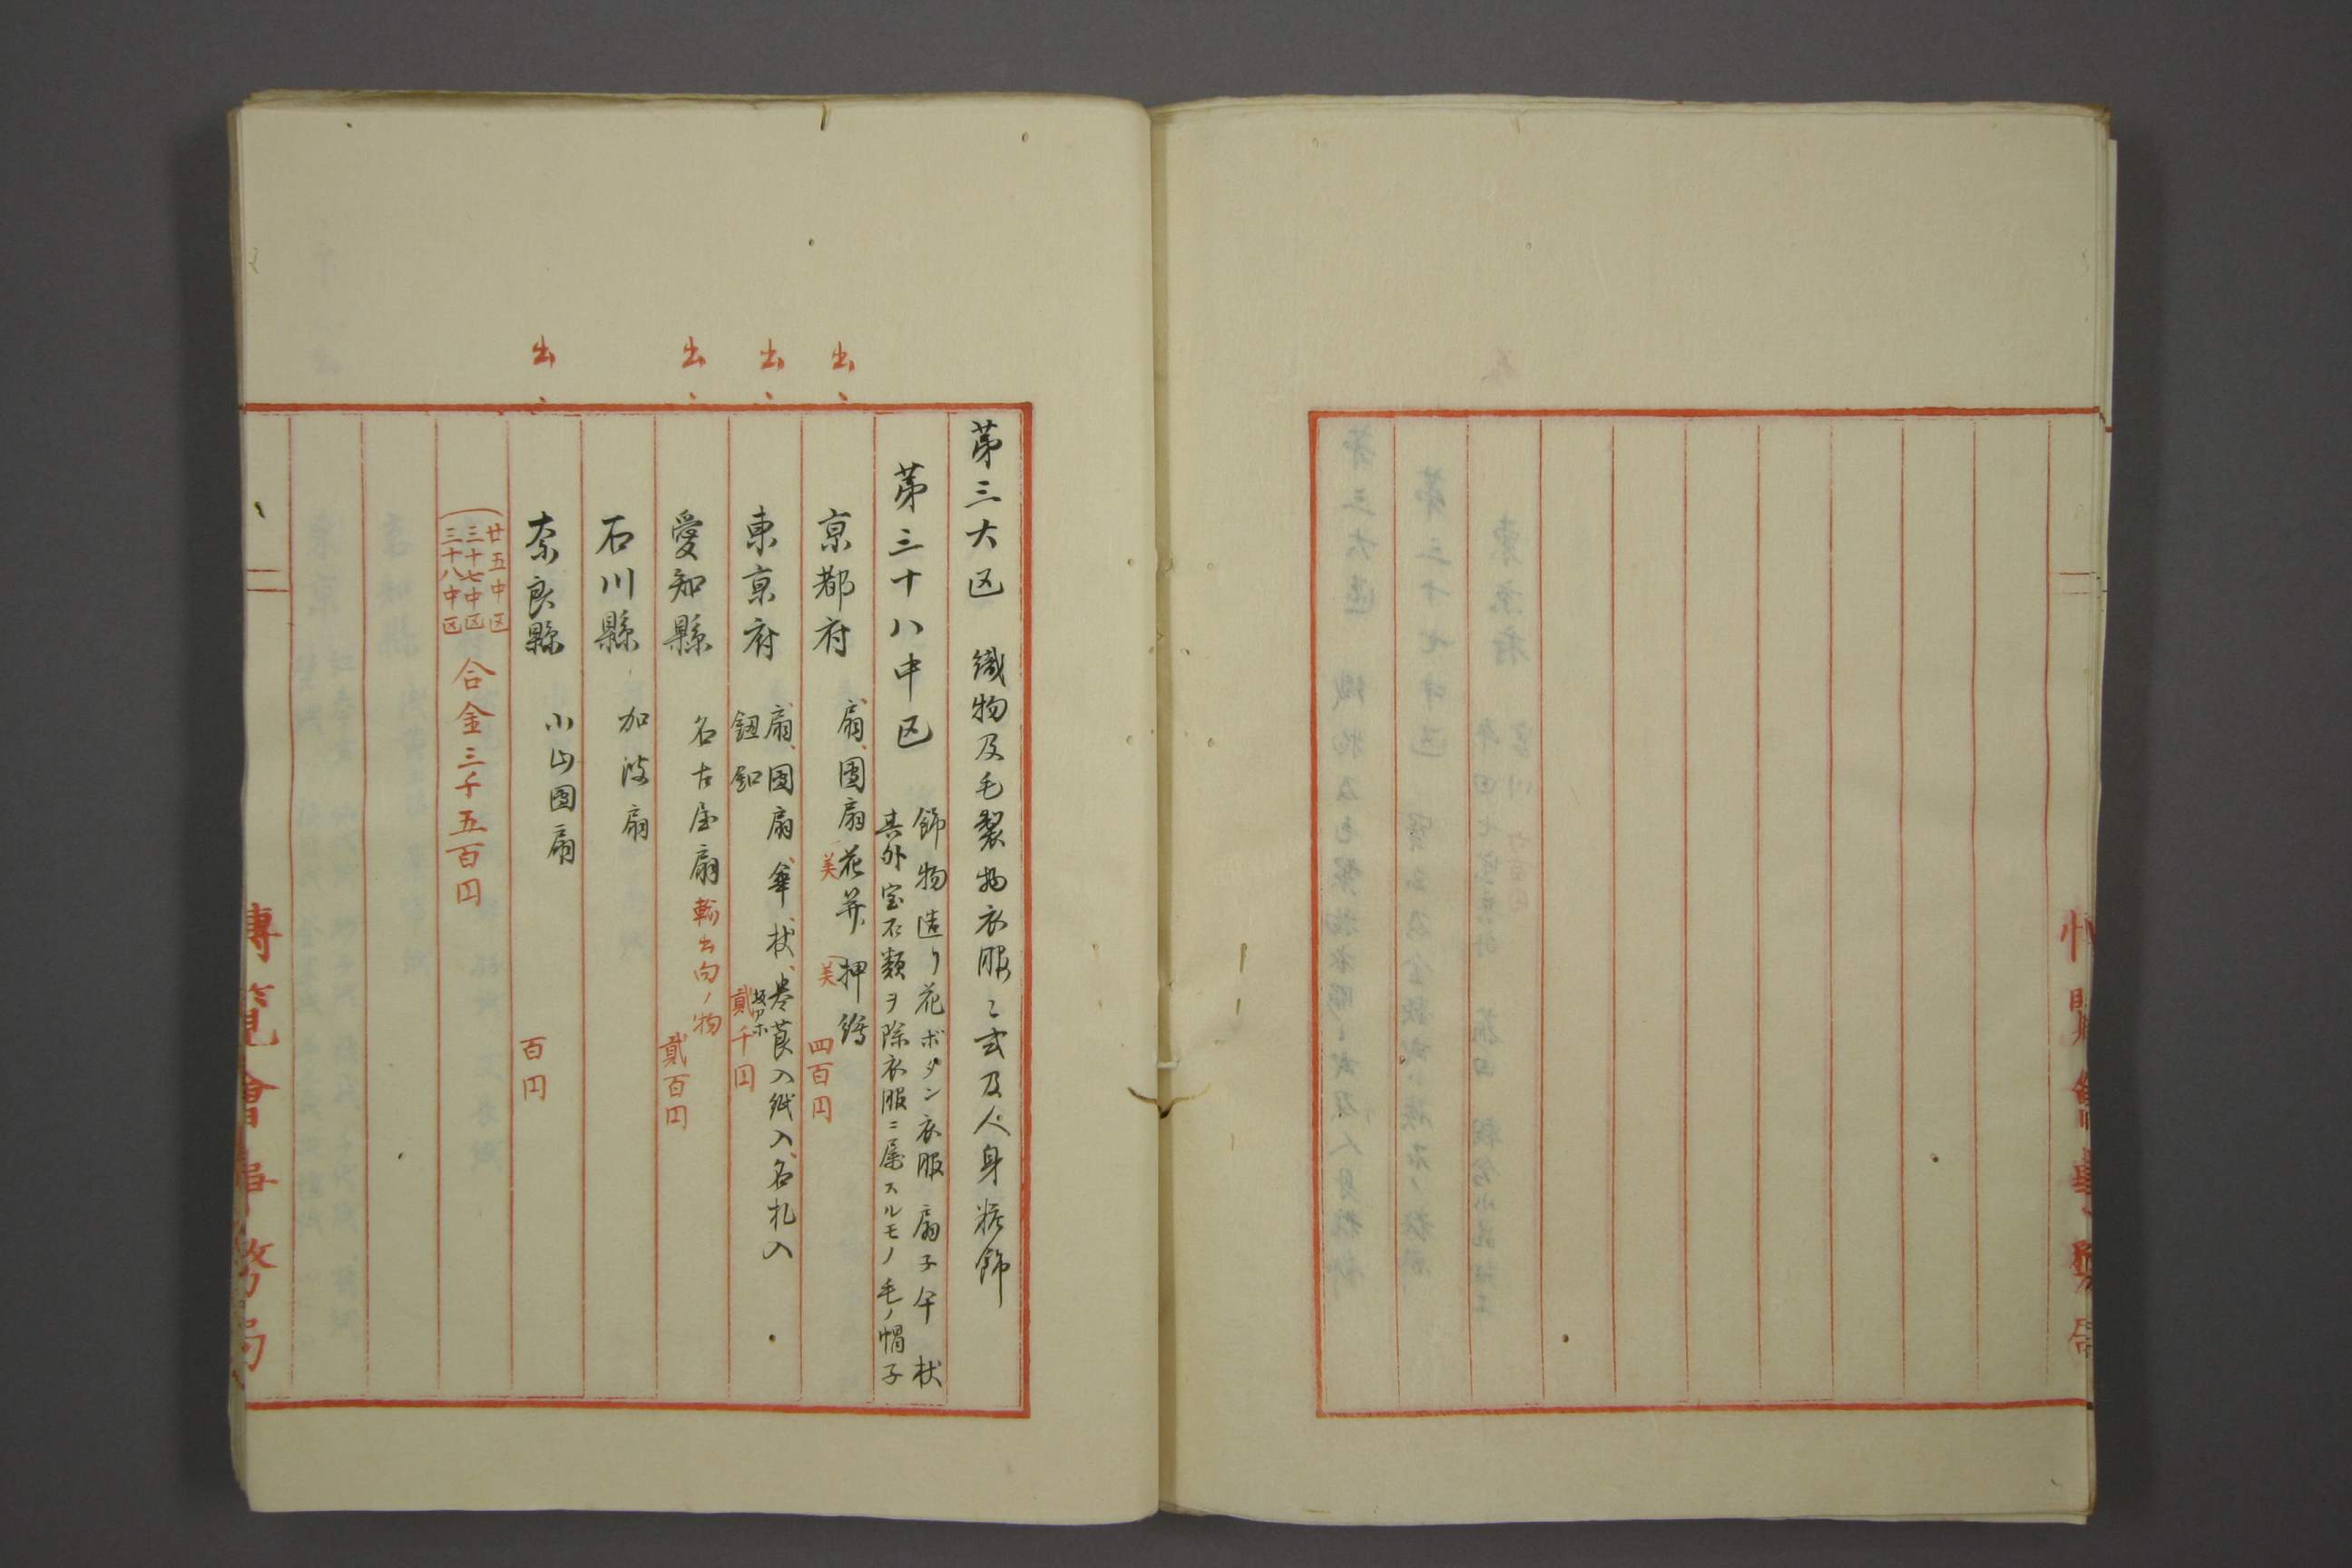 第三大区　織物及毛製物衣服ニ式及人身粧飾
第三十八中区
飾物造リ花ボタン衣服扇子傘杖
其外宝石類ヲ除衣服ニ属スルモノ毛ノ帽子
出
京都府
扇、団扇、花笄、押絵
美
美
四百円
出
東京府
扇、団扇、傘、杖、巻莨入紙入、名札入
鈕釦
貮千円
出
愛知縣
名古屋扇
輸出向ノ物
貮百円
石川縣
加波扇
出
奈良縣
小山團扇
百円
廿五中区
三十七中区
三十八中区
合金三千五百円
博覧會事務局